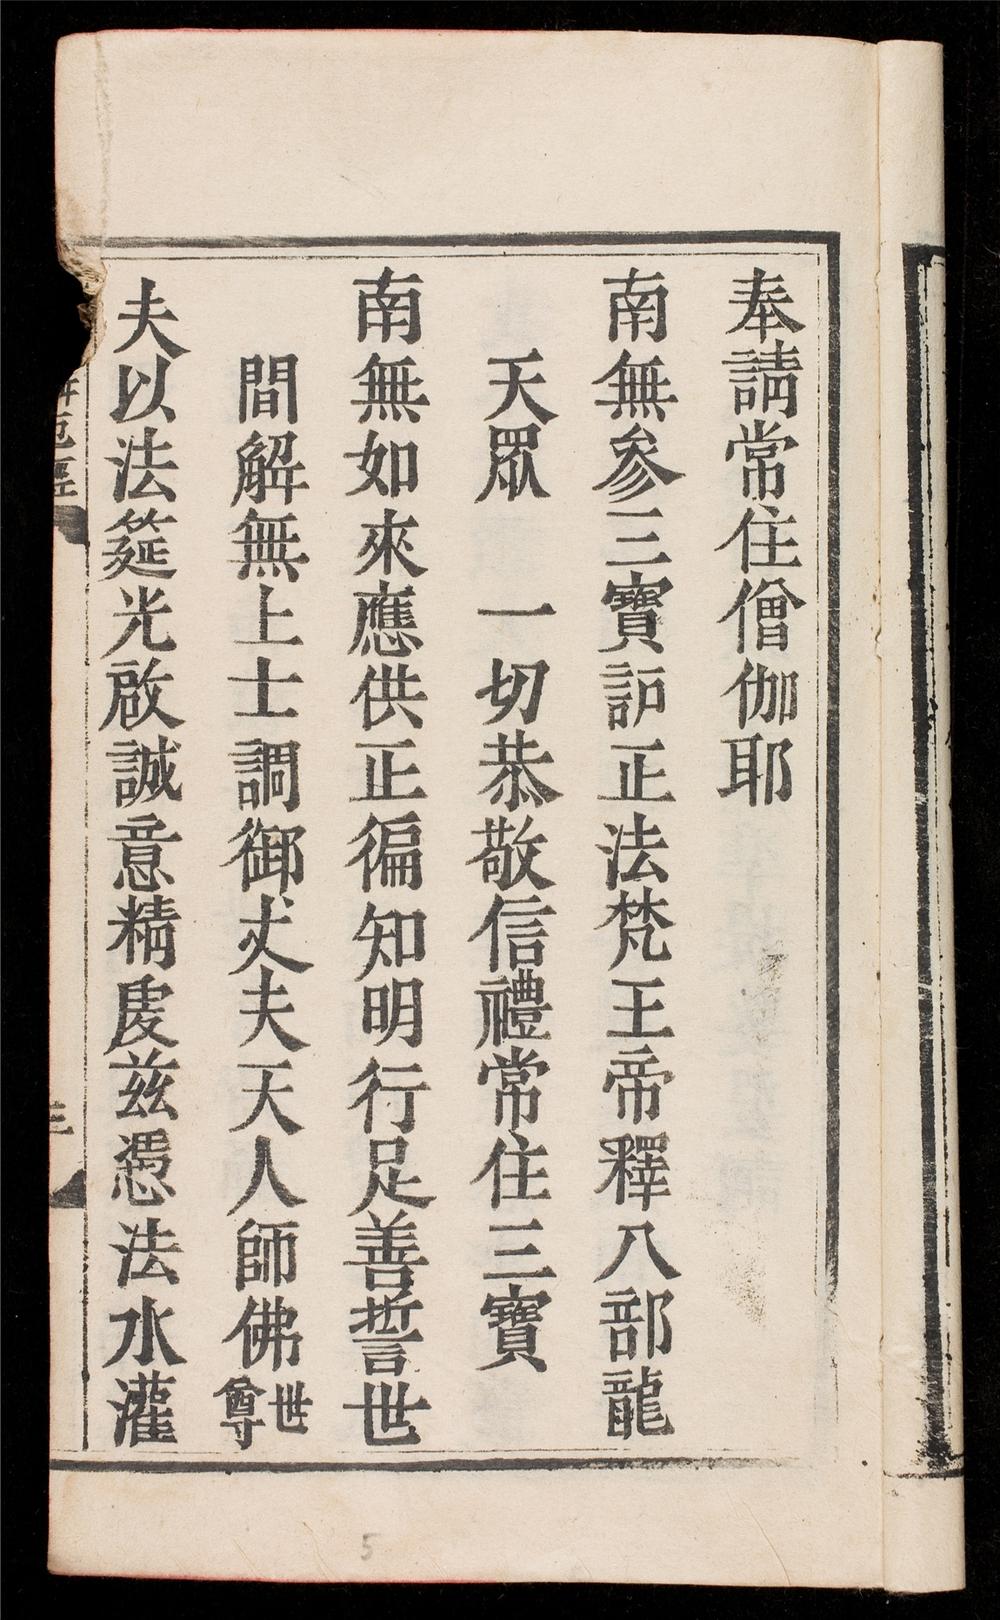 奉請常住僧伽耶
南無參三寶訪正法梵王帝釋八部龍
天眾　一切恭敬信禮常住三寶
南無如來應供正徧知明行足善誓世
間解無上士調御丈夫天人師佛世尊
夫以法筵光啟誠意精虔茲憑法水灌
厄經
三
5